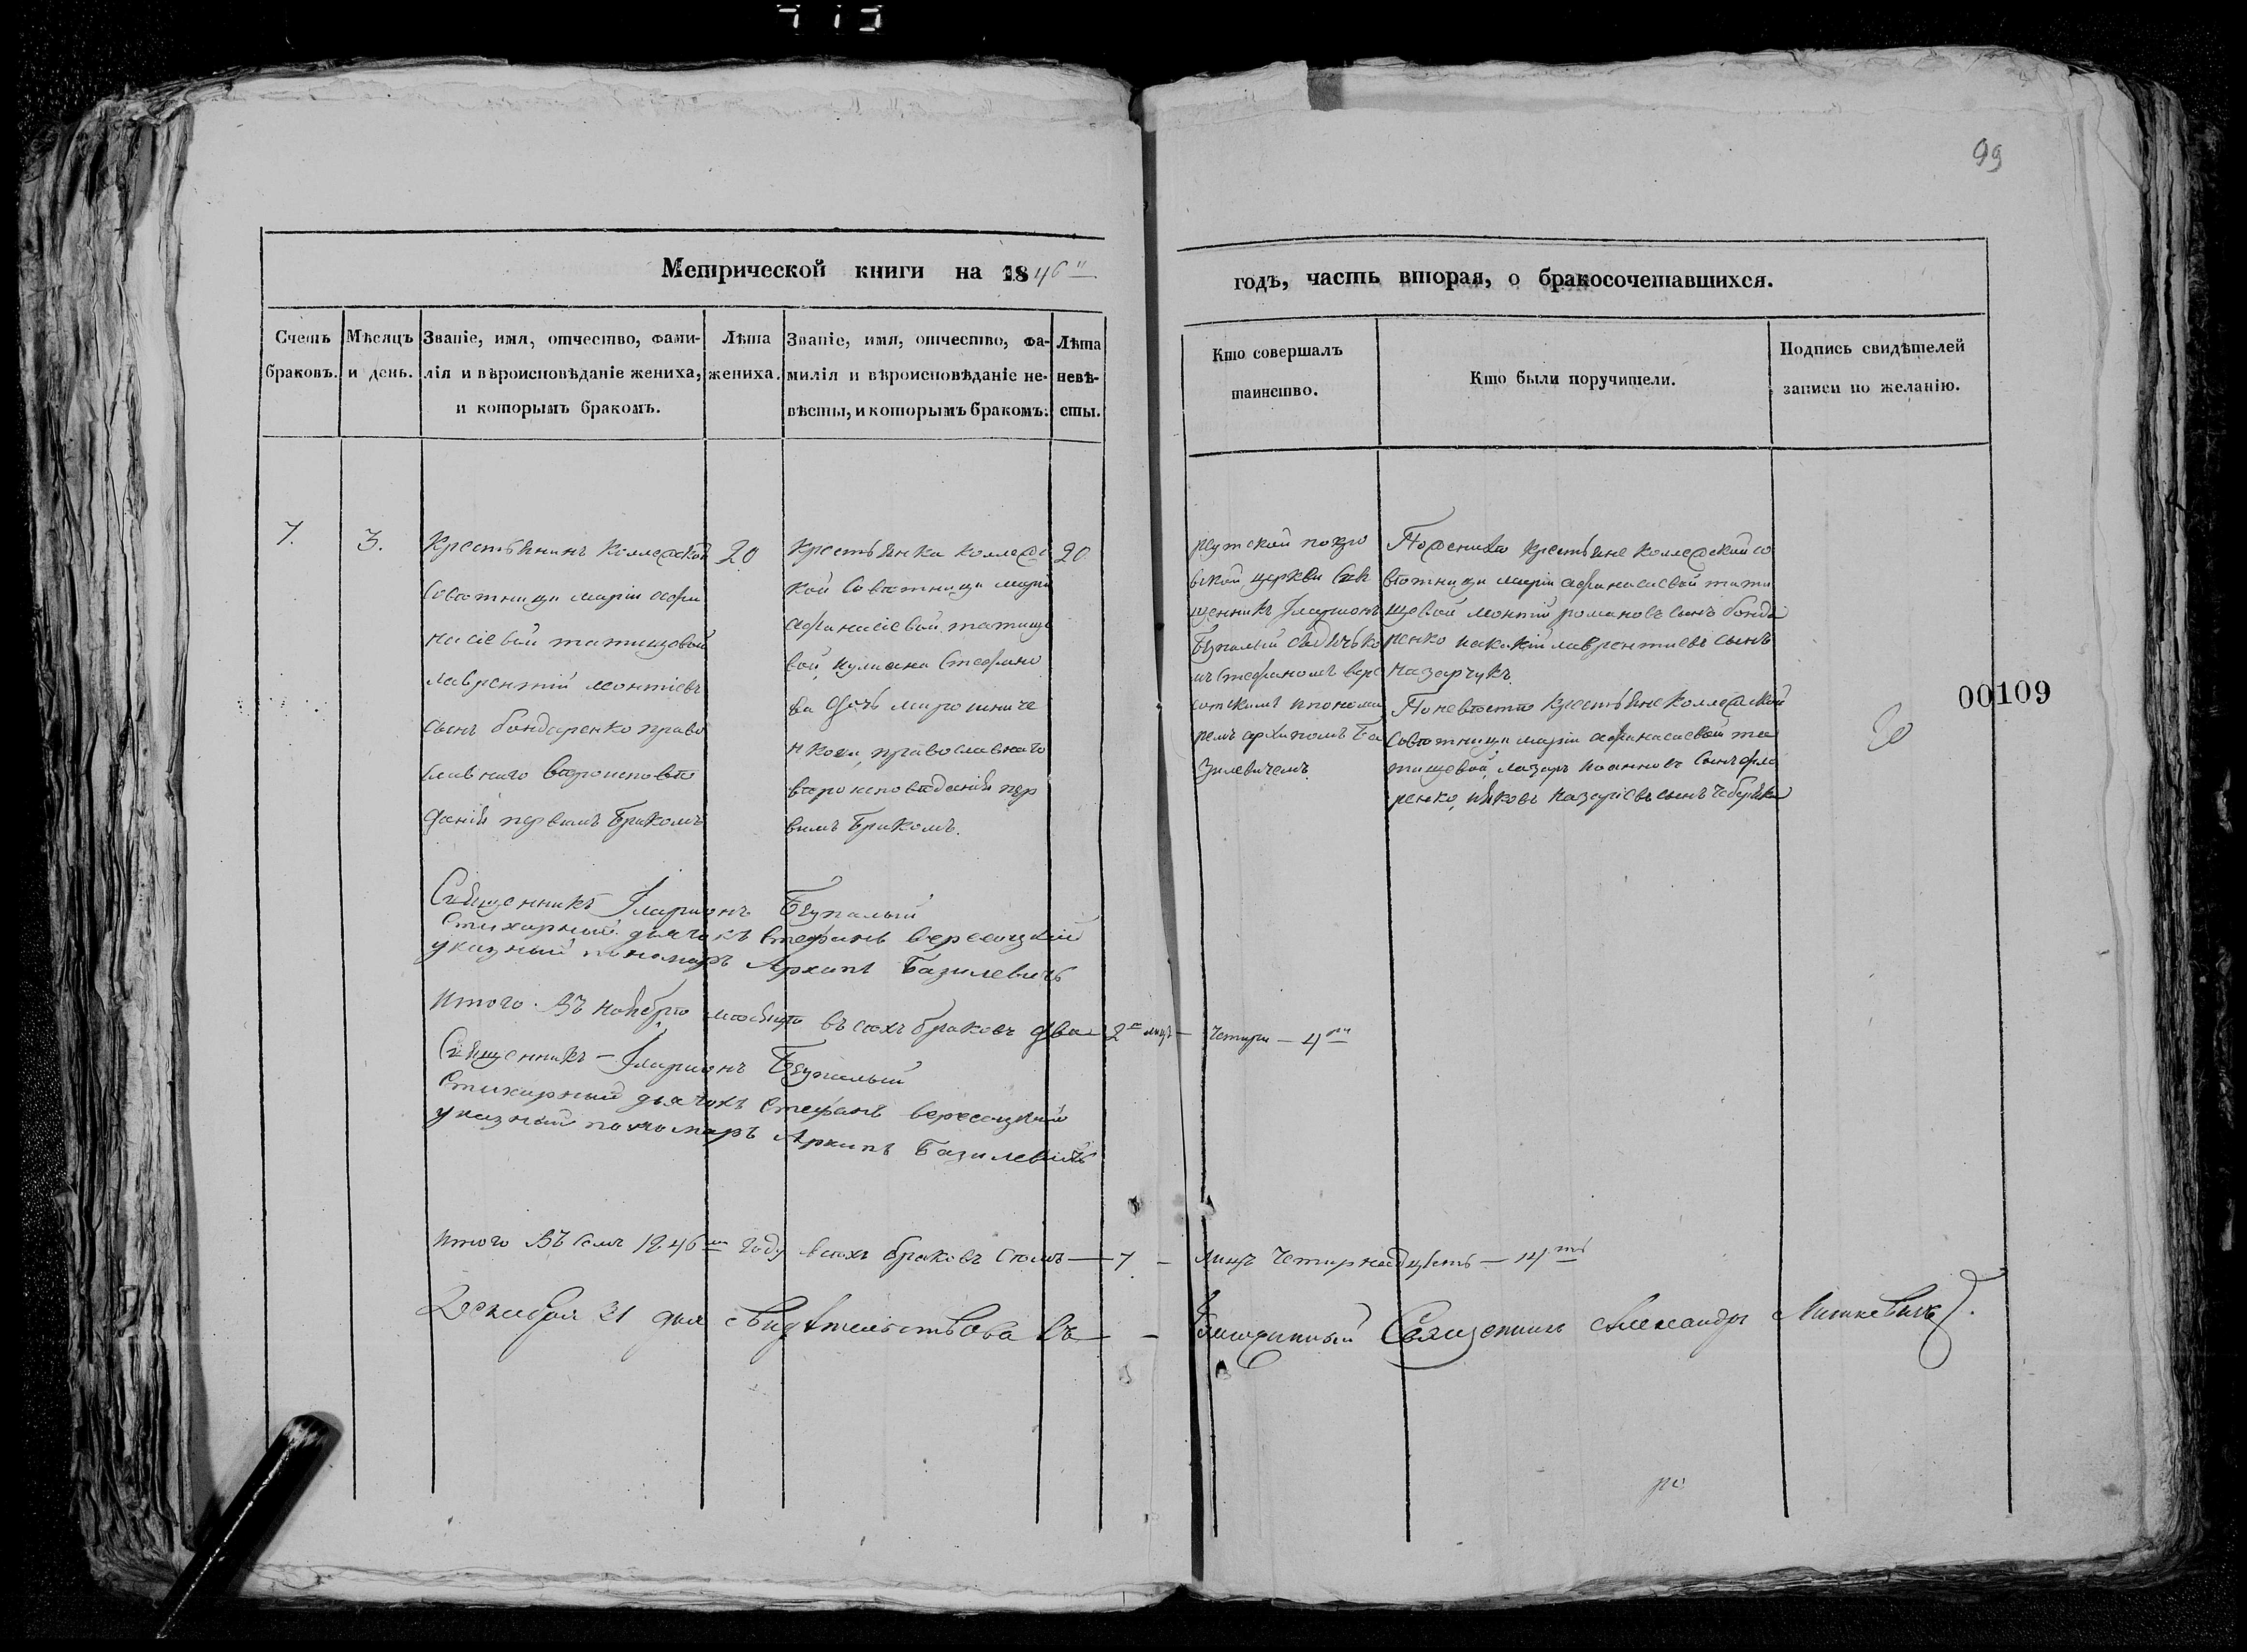 99
Метрической книги на 1846й
годъ, часть вторая, о бракосочетавшихся.
Счетъ браковъ.
Мѣсяцъ и день.
Званіе, имя, отчество, фами-
лія и вѣроисповѣданіе жениха,
и которымъ бракомъ.
Лѣта
жениха.
Званіе, имя, отчество, фа-
милія и вѣроисповѣданіе не-
вѣсты, и которымъ бракомъ.
Лѣта
невѣ-
сты.
Кто совершалъ
таинство.
Кто были поручители.
Подпись свидѣтелей
записи по желанію.
7.
3.
Крестьянинъ Коллежской
Советници марiи афа
насiевой татищовой
Лаврентiй монтiевъ
сынъ бондаренко право
славнаго вѣроисповѣ
данiя первымъ бракомъ
20
Крестьянка коллежс
кой Советници марiи
афанасiевой татище
вой, иулiана Стефано
ва дочь мирошниче
нкова, православнаго
вѣроисповѣданiя пер
вымъ бракомъ.
20
покро
вской церкви Свя
щенникъ Iларионъ
Безпалый сдьячко
мъ Стефаномъ Вере
соцкимъ ипонома
ремъ архипомъ Ба
зилевичемъ
Поженихѣ крестьяне коллежской со
вѣтници марiи афанасiевой тати
щевой монтiй романовъ сынъ бонда
ренко иакакiй лаврентiевъ сынъ
назарчукъ.
Поневѣстѣ крестьяне коллежской
Совѣтници марiи афанасiевой та
тищевой, лазарь иоанновъ Сынъ фло
ренко, ияковъ назарiевъ сынъ
00109
Священникъ Iларионъ Безпалый
Стихарный дьячокъ Стефанъ Вересоцкiй
указный пономарь Архипъ Базилевичъ
Итого. Въ ноябрѣ мѣсяцѣ всѣхъ браковъ два 2а лицъ — Четыри — 4ри
Священникъ — Iларионъ Безпалый
Стихарный дьячокъ Стефанъ Вересоцкiй
указный пономарь Архипъ Базилевичъ
Итого Въ семъ 1846мъ году всѣхъ браковъ Семъ — 7 — Лицъ Четырнадцять — 14ть
Декабря 31 дня свидѣтельствовалъ — Священникъ Александръ